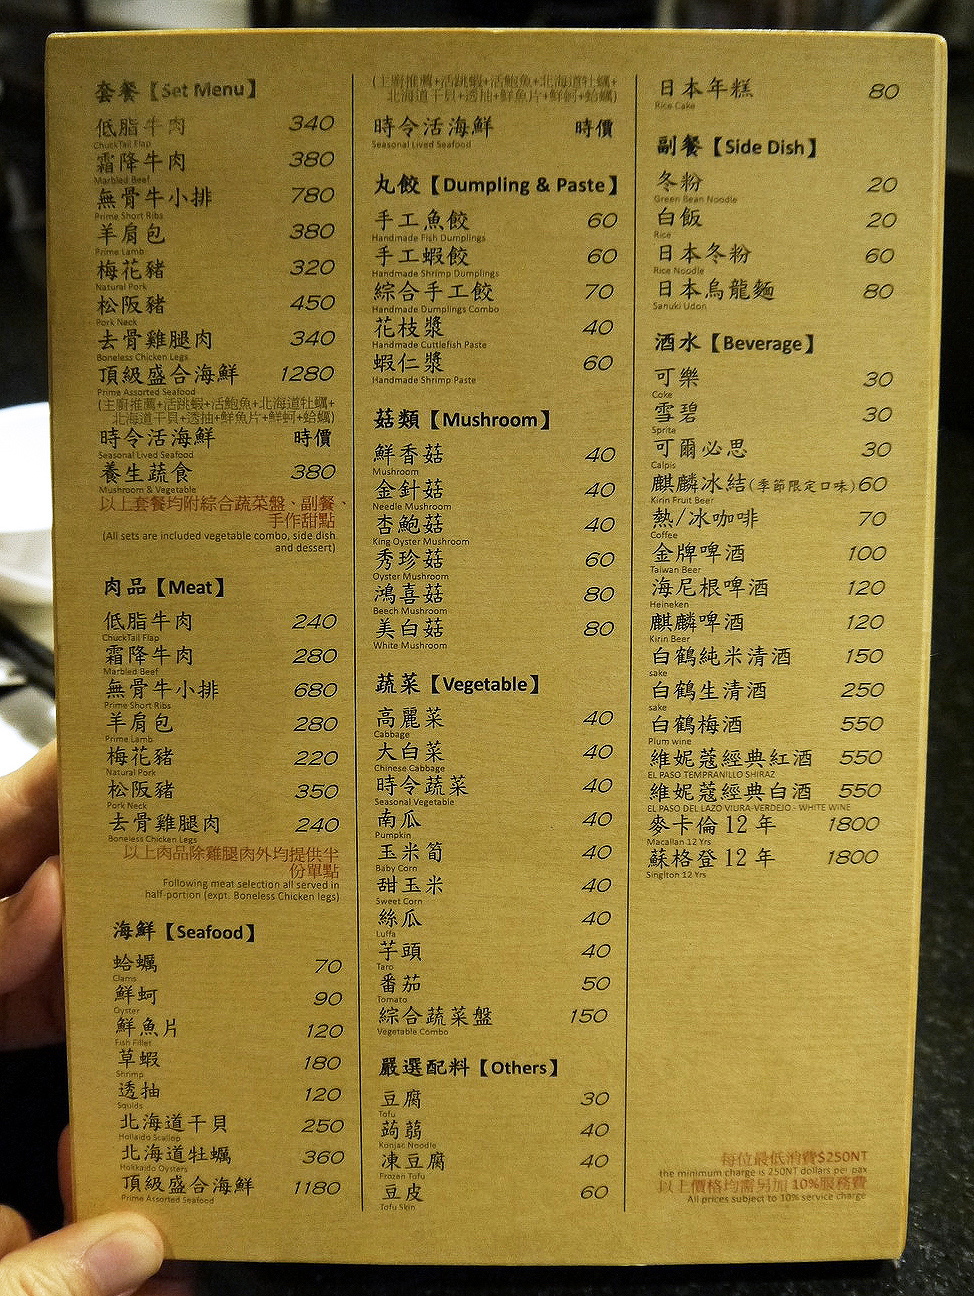 套餐【Set Menu】
低脂牛肉 340
ChuckTail Flap
霜降牛肉 380
Marbled Beef
無骨牛小排 780
Prime Short Ribs
羊肩包 380
Prime Lamb
梅花豬 320
Natural Pork
松阪豬 450
Pork Neck
去骨雞腿肉 340
Boneless Chicken Legs
頂級盛合海鮮 1280
Prime Assorted Seafood
(主廚推薦+活跳蝦+活鮑魚+北海道牡蠣+
北海道干貝+透抽+鮮魚片+鮮蚵+蛤蠣)
時令活海鮮 時價
Seasonal Lived Seafood
養生蔬食 380
Mushroom & Vegetable
以上套餐均附綜合蔬菜盤、副餐、
手作甜點
(All sets are included vegetable combo, side dish
and dessert)
肉品【Meat】
低脂牛肉 240
ChuckTail Flap
霜降牛肉 280
Marbled Beef
無骨牛小排 680
Prime Short Ribs
羊肩包 280
Prime Lamb
梅花豬 220
Natural Pork
松阪豬 350
Pork Neck
去骨雞腿肉 240
Boneless Chicken Legs
以上肉品除雞腿肉外均提供半
份單點
Following meat selection all served in
half-portion (expt. Boneless Chicken legs)
海鮮【Seafood】
蛤蠣 70
Clams
鮮蚵 90
Oyster
鮮魚片 120
Fish Fillet
草蝦 180
Shrimp
透抽 120
Squids
北海道干貝 250
Hollaido Scallop
北海道牡蠣 360
Hokkaido Oysters
頂級盛合海鮮 1180
Prime Assorted Seafood
(主廚推薦+活跳蝦+活鮑魚+北海道牡蠣+
北海道干貝+透抽+鮮魚片+鮮蚵+蛤蠣)
時令活海鮮 時價
Seasonal Lived Seafood
丸餃【Dumpling & Paste】
手工魚餃 60
Handmade Fish Dumplings
手工蝦餃 60
Handmade Shrimp Dumplings
綜合手工餃 70
Handmade Dumplings Combo
花枝漿 40
Handmade Cuttlefish Paste
蝦仁漿 60
Handmade Shrimp Paste
菇類【Mushroom】
鮮香菇 40
Mushroom
金針菇 40
Needle Mushroom
杏鮑菇 40
King Oyster Mushroom
秀珍菇 60
Oyster Mushroom
鴻喜菇 80
Beech Mushroom
美白菇 80
White Mushroom
蔬菜【Vegetable】
高麗菜 40
Cabbage
大白菜 40
Chinese Cabbage
時令蔬菜 40
Seasonal Vegetable
南瓜 40
Pumpkin
玉米筍 40
Baby Corn
甜玉米 40
Sweet Corn
絲瓜 40
Luffa
芋頭 40
Taro
番茄 50
Tomato
綜合蔬菜盤 150
Vegetable Combo
嚴選配料【Others】
豆腐 30
Tofu
蒟蒻 40
Konjac Noodle
凍豆腐 40
Frozen Tofu
豆皮 60
Tofu Skin
日本年糕 80
Rice Cake
副餐【Side Dish】
冬粉 20
Green Bean Noodle
白飯 20
Rice
日本冬粉 60
Rice Noodle
日本烏龍麵 80
Sanuki Udon
酒水【Beverage】
可樂 30
Coke
雪碧 30
Sprite
可爾必思 30
Calpis
麒麟冰結(季節限定口味) 60
Kirin Fruit Beer
熱/冰咖啡 70
Coffee
金牌啤酒 100
Taiwan Beer
海尼根啤酒 120
Heineken
麒麟啤酒 120
Kirin Beer
白鶴純米清酒 150
sake
白鶴生清酒 250
sake
白鶴梅酒 550
Plum wine
維妮蔻經典紅酒 550
EL PASO TEMPRANILLO SHIRAZ
維妮蔻經典白酒 550
EL PASO DEL LAZO VIURA-VERDEJO - WHITE WINE
麥卡倫12年 1800
Macallan 12 Yrs
蘇格登12年 1800
Singlton 12 Yrs
每位最低消費$250NT
the minimum charge is 250NT dollars per pax
以上價格均需另加10%服務費
All prices subject to 10% service charge